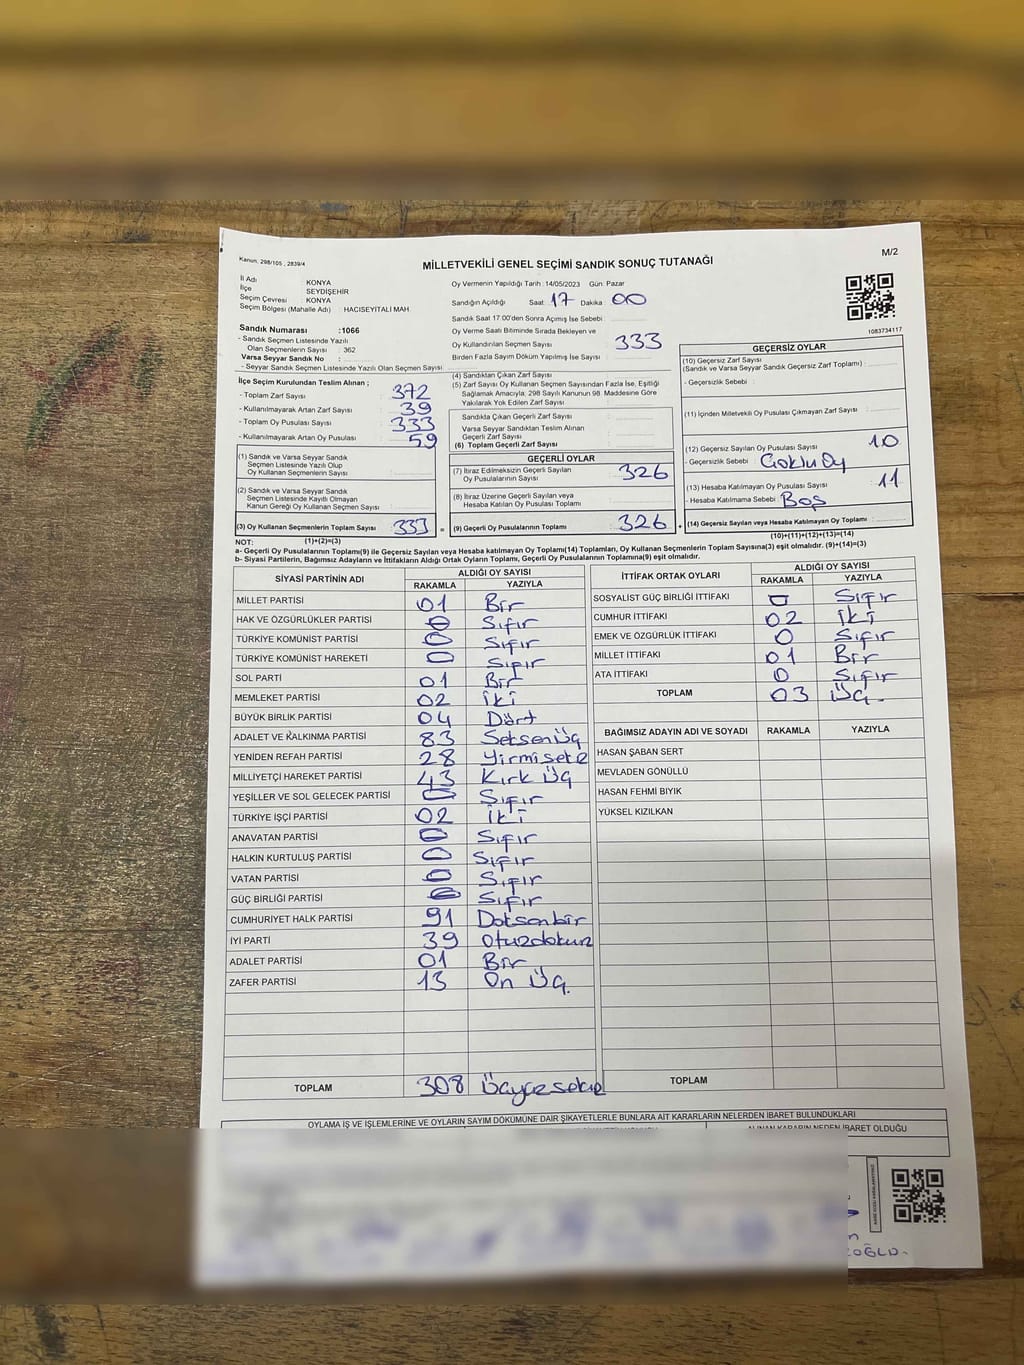 Kanun: 298/105 , 2839/4
M/2
MİLLETVEKİLİ GENEL SEÇİMİ SANDIK SONUÇ TUTANAĞI
İl Adı KONYA
İlçe SEYDİŞEHİR
Seçim Çevresi : KONYA
Seçim Bölgesi (Mahalle Adı) : HACISEYİTALİ MAH
Sandık Numarası :1066
- Sandık Seçmen Listesinde Yazılı
Olan Seçmenlerin Sayısı : 362
Varsa Seyyar Sandık No :
- Seyyar Sandık Seçmen Listesinde Yazılı Olan Seçmen Sayısı
Oy Vermenin Yapıldığı Tarih : 14/05/2023 Gün: Pazar
Sandığın Açıldığı Saat: 17 Dakika 00
Sandık Saat 17:00'den Sonra Açımış İse Sebebi :
Oy Verme Saati Bitiminde Sırada Bekleyen ve
Oy Kullandırılan Seçmen Sayısı : 333
Birden Fazla Sayım Döküm Yapılmış İse Sayısı :
1083734117
İlçe Seçim Kurulundan Teslim Alınan ;
- Toplam Zarf Sayısı : 372
- Kullanılmayarak Artan Zarf Sayısı : 39
- Toplam Oy Pusulası Sayısı : 333
- Kullanılmayarak Artan Oy Pusulası : 59
(1) Sandık ve Varsa Seyyar Sandık
Seçmen Listesinde Yazılı Olup
Oy Kullanan Seçmen Sayısı
(2) Sandık ve Varsa Seyyar Sandık
Seçmen Listesinde Kayıtlı Olmayan
Kanun Gereği Oy Kullanan Seçmen Sayısı
(3) Oy Kullanan Seçmenlerin Toplam Sayısı 333
(1)+(2)=(3)
(4) Sandıktan Çıkan Zarf Sayısı
(5) Zarf Sayısı Oy Kullanan Seçmen Sayısından Fazla İse, Eşitliği
Sağlamak Amacıyla, 298 Sayılı Kanunun 98. Maddesine Göre
Yakılarak Yok Edilen Zarf Sayısı
Sandıkla Çıkan Geçerli Zarf Sayısı
Varsa Seyyar Sandıktan Teslim Alınan
Geçerli Zarf Sayısı
(6) Toplam Geçerli Zarf Sayısı
GEÇERLİ OYLAR
(7) İtiraz Edilmeksizin Geçerli Sayılan
Oy Pusulalarının Sayısı : 326
(8) İtiraz Üzerine Geçerli Sayılan veya
Hesaba Katılan Oy Pusulası Sayısı
= (9) Geçerli Oy Pusulalarının Toplamı 326
GEÇERSİZ OYLAR
(10) Geçersiz Zarf Sayısı
(Sandık ve Varsa Seyyar Sandık Geçersiz Zarf Toplamı) :
- Geçersizlik Sebebi :
(11) İçinden Milletvekili Oy Pusulası Çıkmayan Zarf Sayısı
(12) Geçersiz Sayılan Oy Pusulası Sayısı 10
- Geçersizlik Sebebi : Çoklu Oy
(13) Hesaba Katılmayan Oy Pusulası Sayısı 11
- Hesaba Katılmama Sebebi : Boş
+ (14) Geçersiz Sayılan veya Hesaba Katılmayan Oy Toplamı
(10)+(11)+(12)+(13)=(14)
NOT:
a- Geçerli Oy Pusulalarının Toplamı(9) ile Geçersiz Sayılan veya Hesaba katılmayan Oy Toplamı(14) Toplamları, Oy Kullanan Seçmenlerin Toplam Sayısına(3) eşit olmalıdır. (9)+(14)=(3)
b- Siyasi Partilerin, Bağımsız Adayların ve İttifakların Aldığı Ortak Oyların Toplamı, Geçerli Oy Pusulalarının Toplamına(9) eşit olmalıdır.
SİYASİ PARTİNİN ADI ALDIĞI OY SAYISI
RAKAMLA YAZIYLA
MİLLET PARTİSİ 01 Bir
HAK VE ÖZGÜRLÜKLER PARTİSİ 0 Sıfır
TÜRKİYE KOMÜNİST PARTİSİ 0 Sıfır
TÜRKİYE KOMÜNİST HAREKETİ 0 Sıfır
SOL PARTİ 01 Bir
MEMLEKET PARTİSİ 02 İki
BÜYÜK BİRLİK PARTİSİ 04 Dört
ADALET VE KALKINMA PARTİSİ 83 Seksen Üç
YENİDEN REFAH PARTİSİ 28 Yirmisekiz
MİLLİYETÇİ HAREKET PARTİSİ 43 Kırk Üç
YEŞİLLER VE SOL GELECEK PARTİSİ 0 Sıfır
TÜRKİYE İŞÇİ PARTİSİ 02 İki
ANAVATAN PARTİSİ 0 Sıfır
HALKIN KURTULUŞ PARTİSİ 0 Sıfır
VATAN PARTİSİ 0 Sıfır
GÜÇ BİRLİĞİ PARTİSİ 0 Sıfır
CUMHURİYET HALK PARTİSİ 91 Doksanbir
İYİ PARTİ 39 Otuzdokuz
ADALET PARTİSİ 01 Bir
ZAFER PARTİSİ 13 On Üç.
TOPLAM 308 Üçyüzsekiz
İTTİFAK ORTAK OYLARI ALDIĞI OY SAYISI
RAKAMLA YAZIYLA
SOSYALİST GÜÇ BİRLİĞİ İTTİFAKI 0 Sıfır
CUMHUR İTTİFAKI 02 İki
EMEK VE ÖZGÜRLÜK İTTİFAKI 0 Sıfır
MİLLET İTTİFAKI 01 Bir
ATA İTTİFAKI 0 Sıfır
TOPLAM 03 Üç.
BAĞIMSIZ ADAYIN ADI VE SOYADI RAKAMLA YAZIYLA
HASAN ŞABAN SERT
MEVLADEN GÖNÜLLÜ
HASAN FEHMİ BIYIK
YÜKSEL KIZILKAN
TOPLAM
OYLAMA İŞ VE İŞLEMLERİNE VE OYLARIN SAYIM DÖKÜMÜNE DAİR ŞİKAYETLERLE BUNLARA AİT KARARLARIN NELERDEN İBARET BULUNDUKLARI
ALINAN KARARIN NEDEN İBARET OLDUĞU